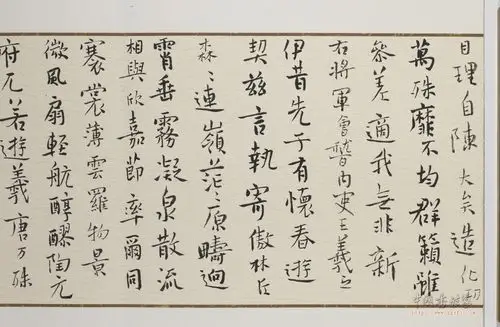 目理自陳大矣造化功
萬殊靡不均群籟雖
參差適我無非新
右將軍會稽內史王羲之
伊昔先子有懷春遊
契茲言執寄傲林丘
森々連嶺茫々原疇迥
霄垂霧凝泉散流
相與欣嘉節率爾同
褰裳薄雲羅物景
微風扇輕航醇醪陶元
府兀若遊羲唐万殊